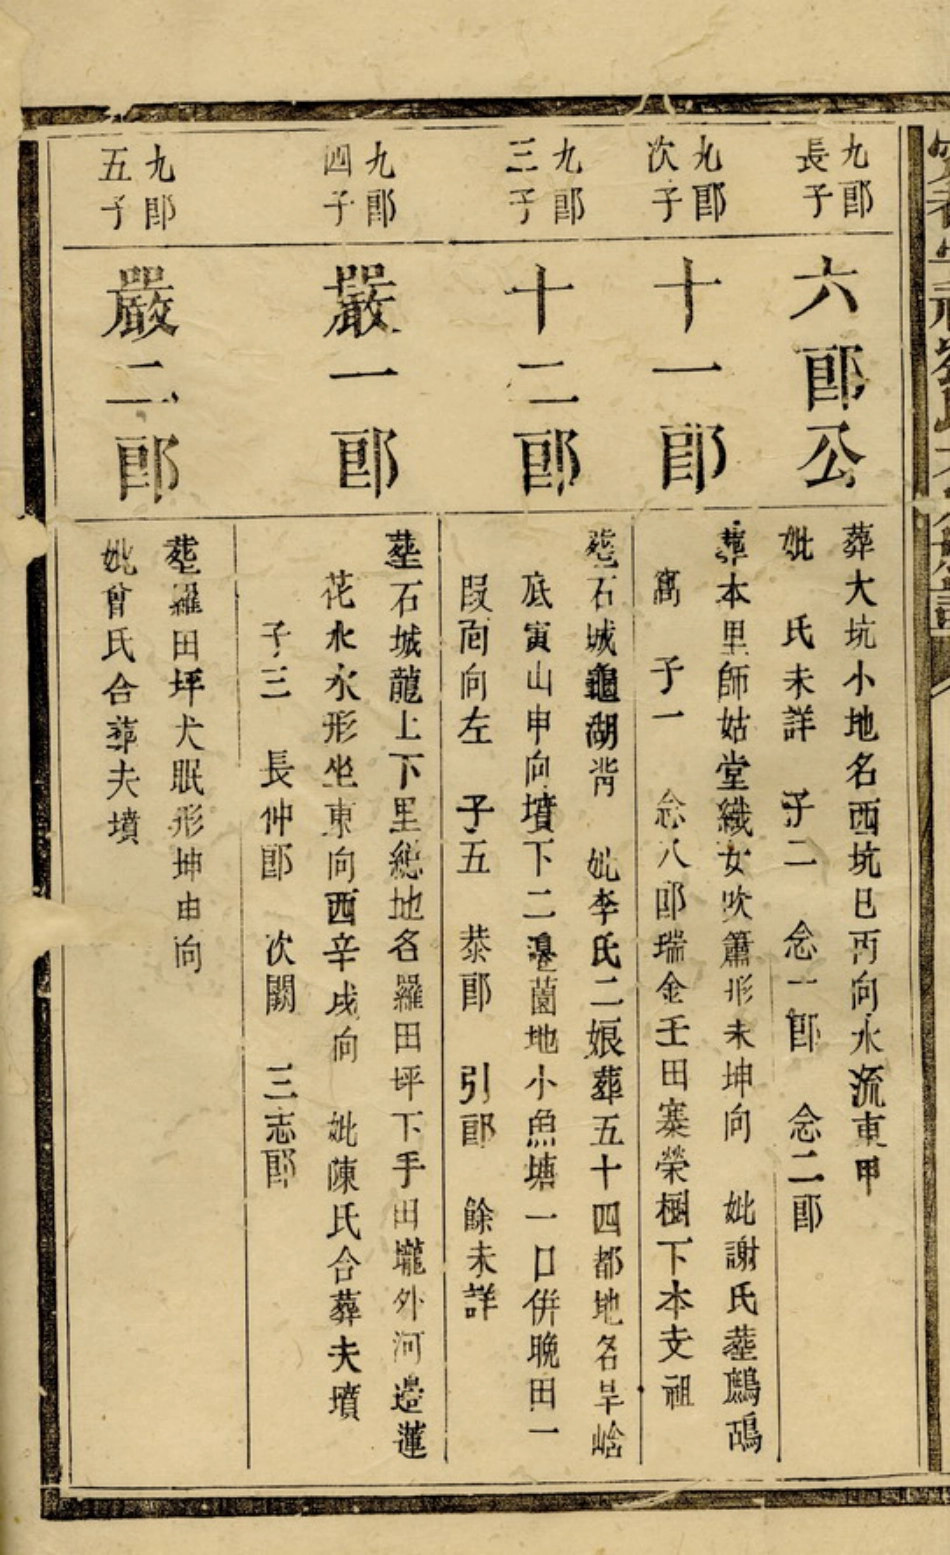 九郎
長子
六郎公
葬大坑小地名西坑巳丙向水流東甲
妣　氏未詳　子二　念一郎　念二郎
九郎
次子
十一郎
葬本里師姑堂織女吹簫形未坤向　妣謝氏塟鷓鴣
窩　子一　念八郎瑞金壬田寨榮樹下本支祖
九郎
三子
十二郎
塟石城龜湖背　妣李氏二娘葬五十四都地名旱峆
底寅山申向墳下二邊薗地小魚塘一口併晚田一
叚向左　子五　恭郎　引郎　餘未詳
九郎
四子
嚴一郎
塟石城龍上下里総地名羅田坪下手田壠外河邉蓮
花水水形坐東向西辛戌向　妣陳氏合葬夫墳
子三　長仲郎　次闕　三志郎
九郎
五子
嚴二郎
塟羅田坪犬眠形坤由向
妣曾氏合葬夫墳